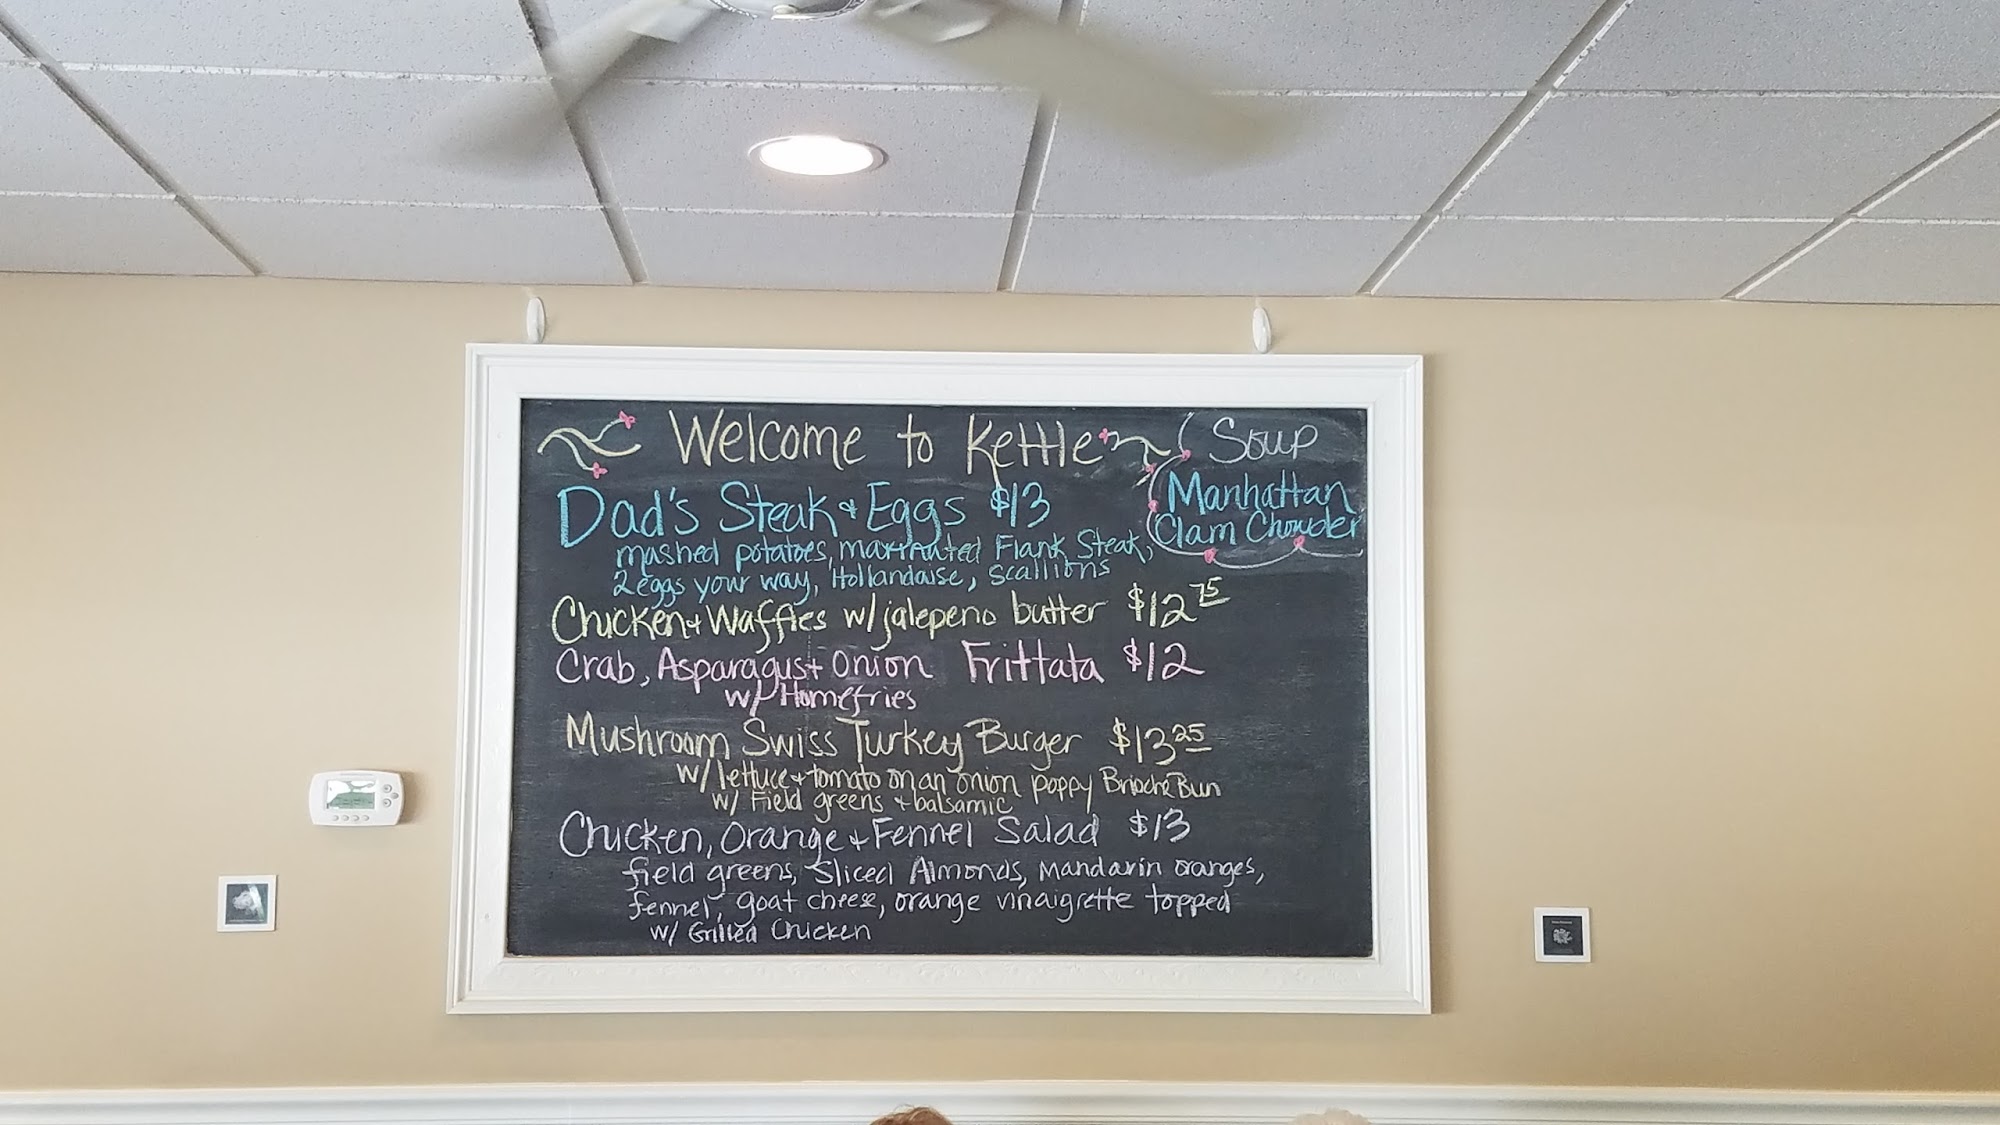 Welcome to Kettle
Dad's Steak + Eggs $13
mashed potatoes, marinated Flank Steak,
2 eggs your way, Hollandaise, scallions
Chicken + Waffles w/ jalepeno butter $12 75
Crab, Asparagus + Onion Frittata $12
w/ Homefries
Mushroom Swiss Turkey Burger $13 25
w/ lettuce + tomato on an onion poppy Brioche Bun
w/ Field greens + balsamic
Chicken, Orange + Fennel Salad $13
field greens, Sliced Almonds, mandarin oranges,
fennel, goat cheese, orange vinaigrette topped
w/ Grilled Chicken
Soup
Manhattan
Clam Chowder